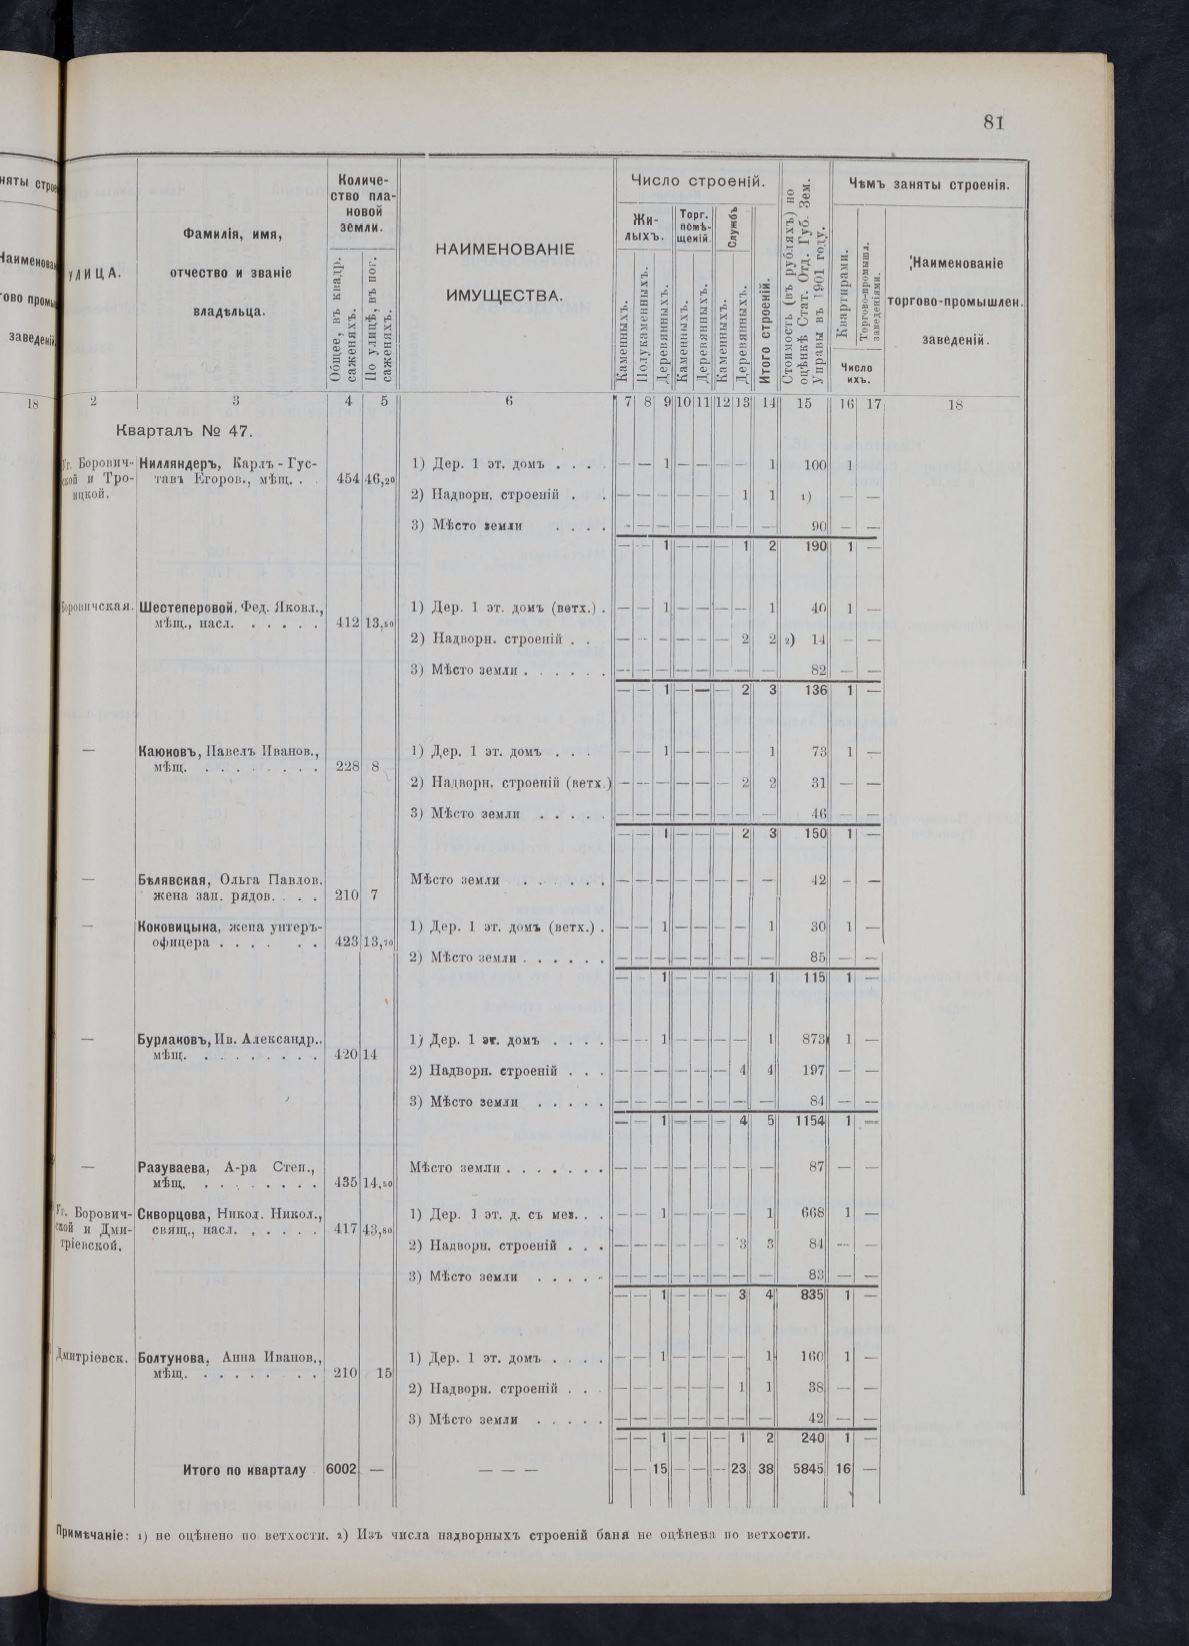 81
няты строе
Наименован
ово промы
заведеній
18
УЛИЦА.
Фамилія, имя,
отчество и званіе
владѣльца.
Количе-
ство пла-
новой
земли.
Общее, въ квадр.
саженяхъ.
По улицѣ, въ пог.
саженяхъ.
НАИМЕНОВАНІЕ
ИМУЩЕСТВА.
Число строеній.
Жи-
лыхъ.
Торг.
помѣ-
щеній.
Службъ
Каменныхъ.
Полукаменныхъ.
Деревянныхъ.
Каменныхъ.
Деревянныхъ.
Каменныхъ.
Деревянныхъ.
Итого строеній.
Стоимость (въ рубляхъ) по
оцѣнкѣ Стат. Отд. Губ. Зем.
Управы въ 1901 году.
Чѣмъ заняты строенія.
Квартирами.
Торгово-промышл.
заведеніями.
Число
ихъ.
Наименованіе
торгово-промышлен.
заведеній.
2 3 4 5 6 7 8 9 10 11 12 13 14 15 16 17 18
Кварталъ № 47.
Уг. Борович- Нилляндеръ, Карлъ-Гус- 1) Дер. 1 эт. домъ . . . . — — 1 — — — — 1 100 1
ской и Тро- тавъ Егоров., мѣщ. . 454 46,20
ицкой. 2) Надворн. строеній . . — — — — — — 1 1 1) — —
3) Мѣсто земли . . . . — — — — — — — — 90 — —
— — 1 — — — 1 2 190 1 —
Боровичская. Шестеперовой, Фед. Яковл., 1) Дер. 1 эт. домъ (ветх.) . — — 1 — — — — 1 40 1 —
мѣщ., насл. . . . . . 412 13,50
2) Надворн. строеній . . — — — — — — 2 2 2) 14 — —
3) Мѣсто земли . . . . . . — — — — — — — — 82 — —
— — 1 — — — 2 3 136 1 —
— Каюковъ, Павелъ Иванов., 1) Дер. 1 эт. домъ . . . — — 1 — — — — 1 73 1 —
мѣщ. . . . . . . . . 228 8
2) Надворн. строеній (ветх.) — — — — — — 2 2 31 — —
3) Мѣсто земли . . . . . — — — — — — — — 46 — —
— — 1 — — — 2 3 150 1 —
— Бѣлявская, Ольга Павлов. Мѣсто земли . . . . . . — — — — — — — — 42 — —
жена зап. рядов. . . . 210 7
— Коковицына, жена унтеръ- 1) Дер. 1 эт. домъ (ветх.) . — — 1 — — — — 1 30 1 —
офицера . . . . . . 423 13,70
2) Мѣсто земли . . . . . . — — — — — — — — 85 — —
— — 1 — — — — 1 115 1 —
— Бурлаковъ, Ив. Александр.. 1) Дер. 1 эт. домъ . . . . — — 1 — — — — 1 873 1 —
мѣщ. . . . . . . . . 420 14
2) Надворн. строеній . . . — — — — — — 4 4 197 — —
3) Мѣсто земли . . . . . — — — — — — — — 84 — —
— — 1 — — — 4 5 1154 1 —
— Разуваева, А-ра Степ., Мѣсто земли . . . . . . . — — — — — — — — 87 — —
мѣщ. . . . . . . . . 435 14,50
Уг. Борович- Скворцова, Никол. Никол., 1) Дер. 1 эт. д. съ мез. . . — — 1 — — — — 1 668 1 —
ской и Дми- свящ., насл. . . . . . 417 43,80
тріевской. 2) Надворн. строеній . . . — — — — — — 3 3 84 — —
3) Мѣсто земли . . . . . — — — — — — — — 83 — —
— — 1 — — — 3 4 835 1 —
Дмитріевск. Болтунова, Анна Иванов., 1) Дер. 1 эт. домъ . . . . — — 1 — — — — 1 160 1 —
мѣщ. . . . . . . . 210 15
2) Надворн. строеній . . . — — — — — — 1 1 38 — —
3) Мѣсто земли . . . . . — — — — — — — — 42 — —
— — 1 — — — 1 2 240 1 —
Итого по кварталу 6002 — — — — — — 15 — — — 23 38 5845 16 —
Примѣчаніе: 1) не оцѣнено по ветхости. 2) Изъ числа надворныхъ строеній баня не оцѣнена по ветхости.